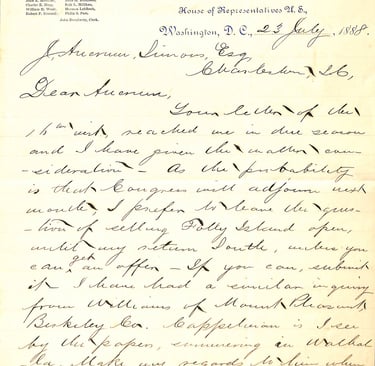 House of Representatives U.S.,
Washington, D.C., 23 July, 1888.
John H. Rogers,
Charles E. Hogg,
William H. Wade,
Robert P. Kennedy.
Philip S. Post.
John Broadway, Clerk.
J. Ancrum, Simons, Esq
Charleston, SC,
Dear Ancrum,
Your letter of the
16th inst, reached me in due season
and I have given the matter con-
sideration - As the probability
is that Congress will adjourn next
month, I prefer to leave the ques-
tion of selling Folly Island open,
until my return South, unless you
can get an offer - If you can, submit
it. I have had a similar inquiry
from Williams of Mount Pleasant
Berkeley Co. Cappelman is I see
by the papers, summering in Walhal
la. Make my regards to him when